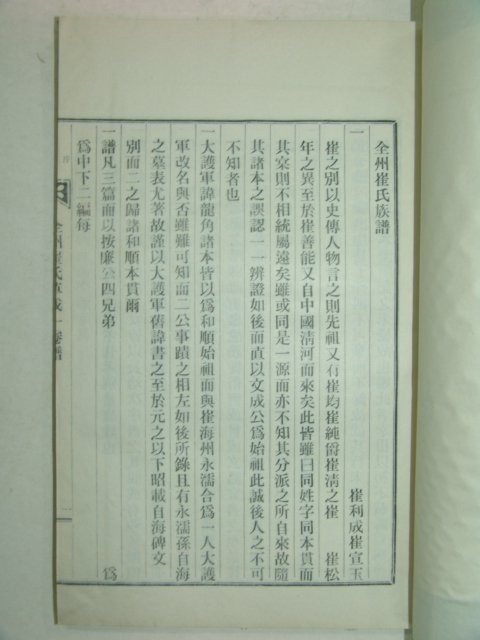 全州崔氏族譜
一　崔利成崔宣玉
崔之別以史傳人物言之則先祖又有崔均崔純爵崔淸之崔　崔松
年之異至於崔善能又自中國淸河而來矣此皆雖曰同姓字同本貫而
其寀則不相統屬遠矣雖或同是一源而亦不知其分派之所自來故隨
其諸本之誤認一一辨證如後而直以文成公爲始祖此誠後人之不可
不知者也
一大護軍諱龍角諸本皆以爲和順始祖而與崔海州永濡合爲一人大護
軍改名與否雖難可知而二公事蹟之相左如後所錄且有永濡孫自海
之墓表尤著故謹以大護軍舊諱書之至於元之以下昭載自海碑文
別而二之歸諸和順本貫爾
一譜凡三篇而以按廉公四兄弟　爲
爲中下二編每
全州崔氏　一卷譜